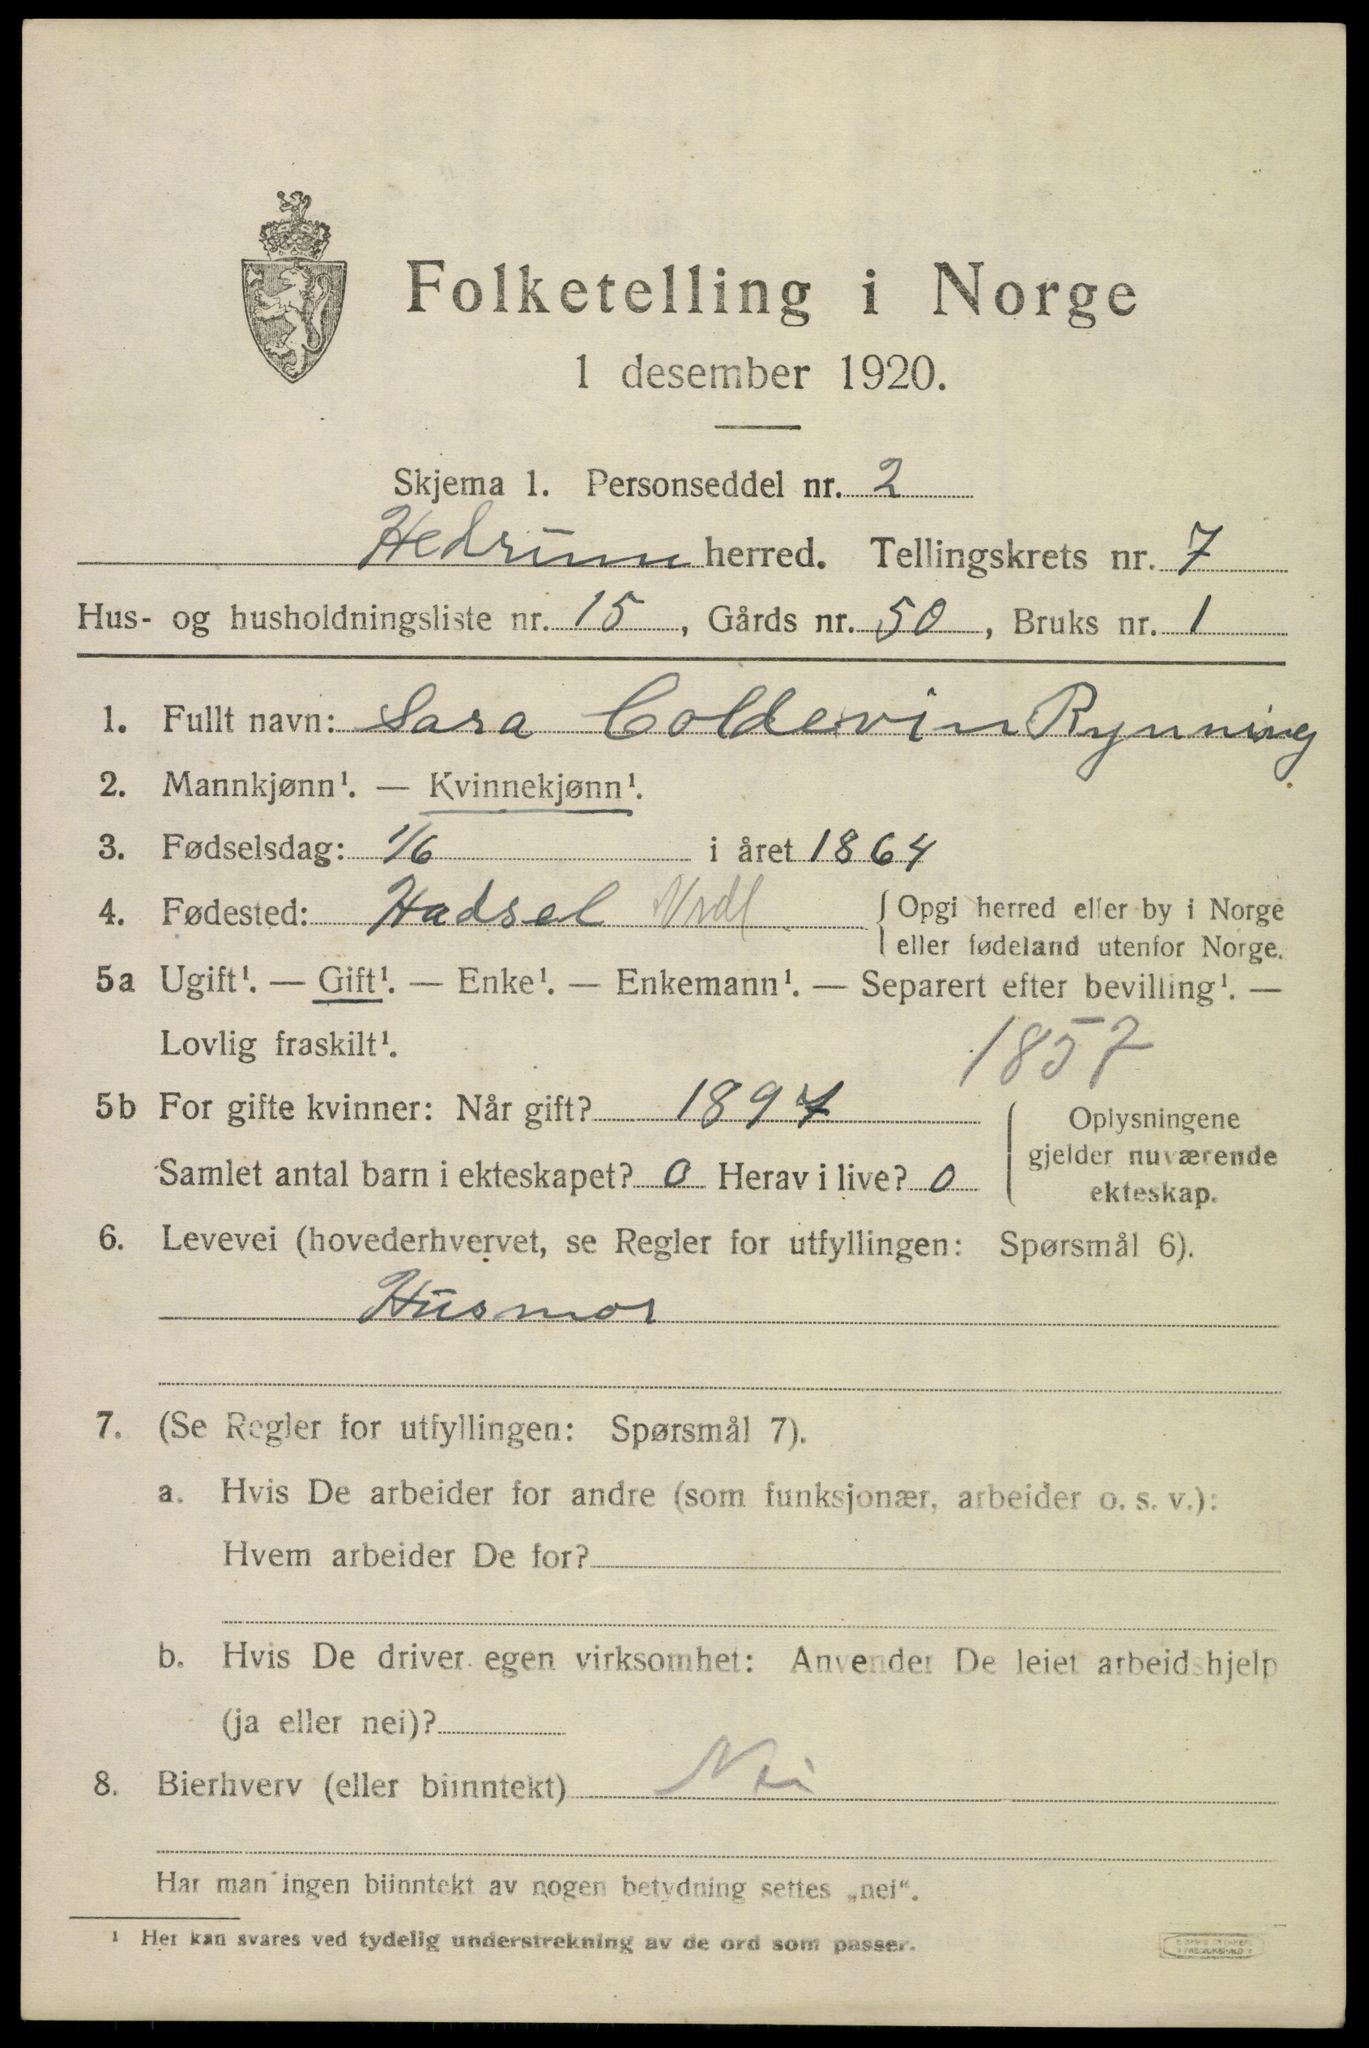 Folketelling i Norge
1 desember 1920.
Skjema 1. Personseddel nr. 2
Hedrum herred. Tellingskrets nr. 7
Hus- og husholdningsliste nr. 15, Gårds nr. 50, Bruks nr. 1
1. Fullt navn: Sara Coldevin Rynning
2. Mannkjønn¹. — Kvinnekjønn¹.
3. Fødselsdag: 1/6 i året 1864
4. Fødested: Hadsel Nrdl { Opgi herred eller by i Norge
eller fødeland utenfor Norge.
5a Ugift¹. — Gift¹. — Enke¹. — Enkemann¹. — Separert efter bevilling¹. —
Lovlig fraskilt¹. 1857
5b For gifte kvinner: Når gift? 1897
Samlet antal barn i ekteskapet? 0 Herav i live? 0
Oplysningene
gjelder nuværende
ekteskap.
6. Levevei (hovederhvervet, se Regler for utfyllingen: Spørsmål 6).
Husmor
7. (Se Regler for utfyllingen: Spørsmål 7).
a. Hvis De arbeider for andre (som funksjonær, arbeider o. s. v.):
Hvem arbeider De for?
b. Hvis De driver egen virksomhet: Anvender De leiet arbeidshjelp
(ja eller nei)?
8. Bierhverv (eller biinntekt) Nei
Har man ingen biinntekt av nogen betydning settes „nei“.
¹ Her kan svares ved tydelig understrekning av de ord som passer.